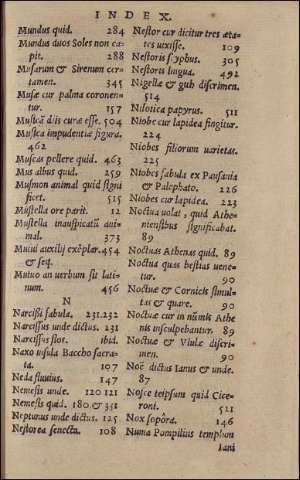 INDEX.
Mundus quid. 284
Mundus duos Soles non ca-
pit. 288
Musarum & Sirenum cer-
tamen. 345
Musæ cur palma coronen-
tur. 157
Muscæ diis curæ esse. 504
Musica impudentiæ figura.
462
Muscas pellere quid. 463
Mus albus quid. 259
Musmon animal quid signi
ficet. 515
Mustella ore parit. 12
Mustella inauspicatū ani-
mal. 373
Mutui auxilij exēplar. 454
& seq.
Mutuo an verbum sit lati-
num. 456
N
Narcissi fabula. 231.232
Narcissus unde dictus. 231
Narcissus flos. ibid.
Naxo insula Baccho sacra-
ta. 107
Neda fluvius. 147
Nemesis unde. 120 121
Nemesis quid. 180.& 351
Neptunus unde dictus. 125
Nestorea senecta. 108
Nestor cur dicitur tres æta-
tes vixisse. 109
Nestoris scyphus. 305
Nestoris lingua. 492
Nigellæ & guh discrimen.
514
Nilotica papyrus. 511
Niobe cur lapidea fingitur.
224
Niobes filiorum varietas.
225
Niobes fabula ex Pausania
& Palephato. 226
Niobes cur lapidea. 223
Noctua volat, quid Athe-
niensibus significabat.
89
Noctuas Athenas quid. 89
Noctua quas bestias vene-
tur. 90
Noctuæ & Cornicis simul-
tas & quare. 90
Noctuæ cur in numis Athe
nis insculpebantur. 89
Noctuæ & Vlulæ discri-
men. 90
Noë dictus Ianus & unde.
87
Nosce teipsum quid Cice-
roni. 521
Nox sopora. 146
Numa Pompilius templum
Iani